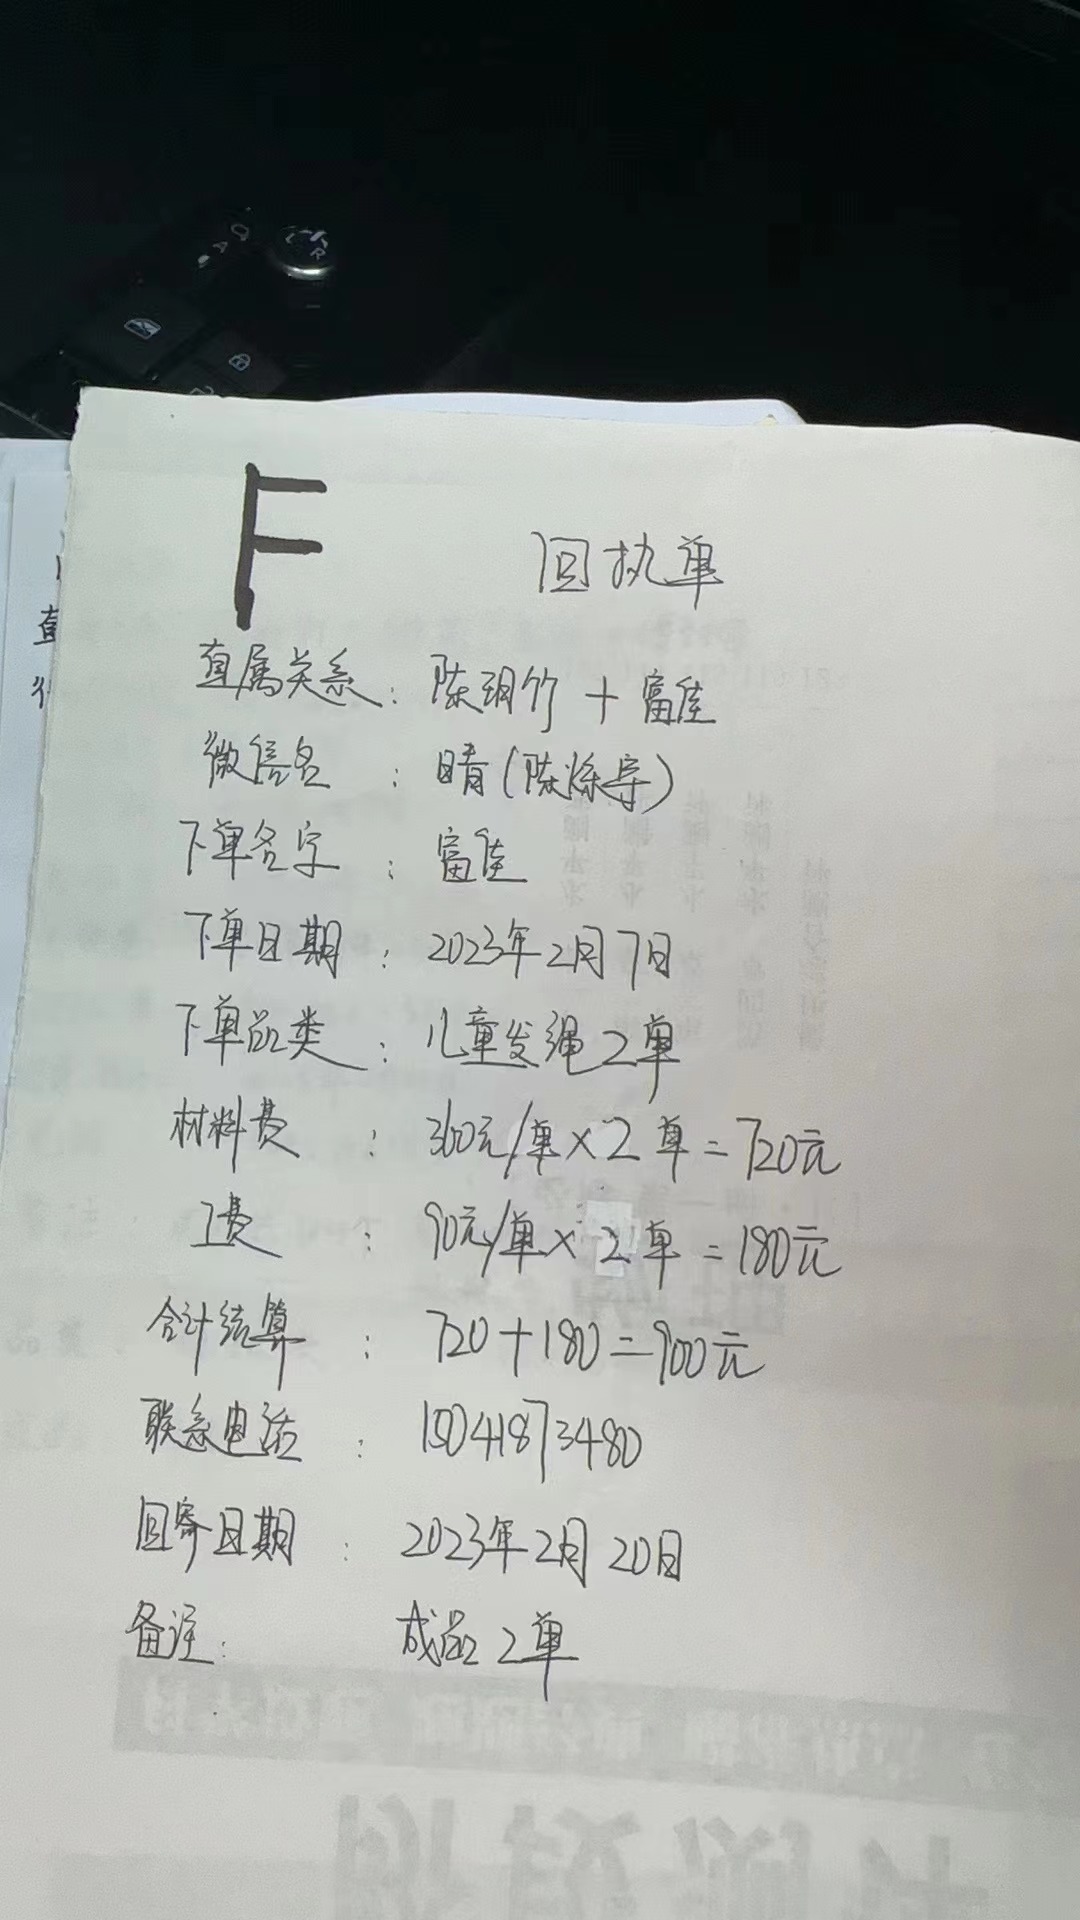 F
回执单
直属关系：陈玥竹＋富佳
微信名：晴(陈烁宇)
下单名字：富佳
下单日期：2023年2月7日
下单品类：儿童发绳2单
材料费：360元/单×2单=720元
工费：90元/单×2单=180元
合计结算：720+180=900元
联系电话：15041873480
回寄日期：2023年2月20日
备注：成品2单